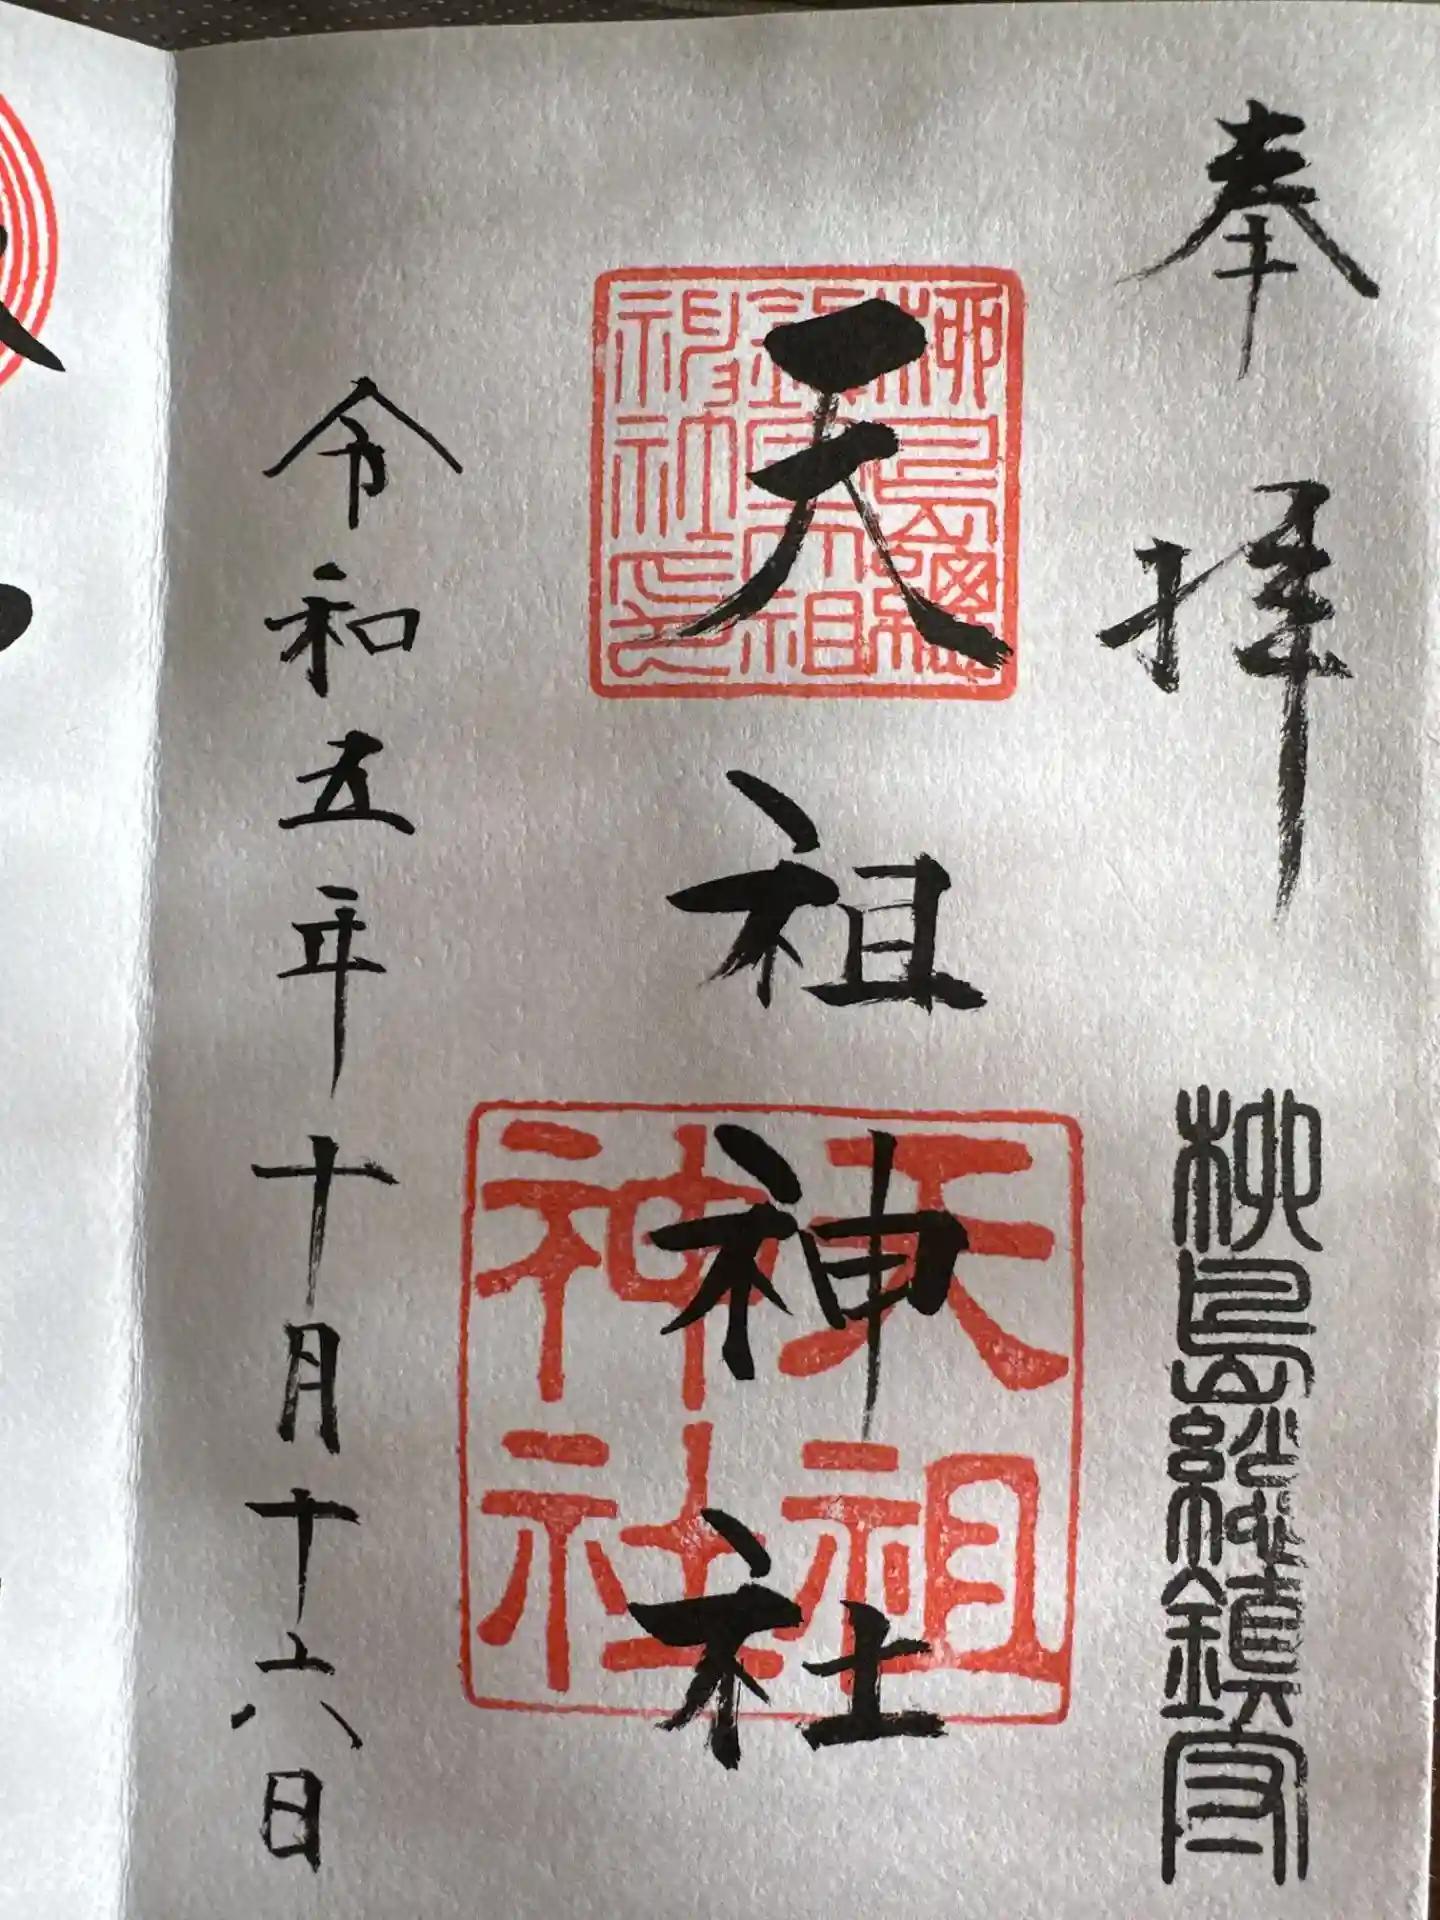 奉拝
柳島総鎮守
天祖神社
柳島総
鎮守天祖
神社之印
天祖
神社
令和五年十月十六日